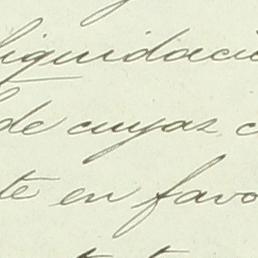 liquidació
de cuyas c
te en favo